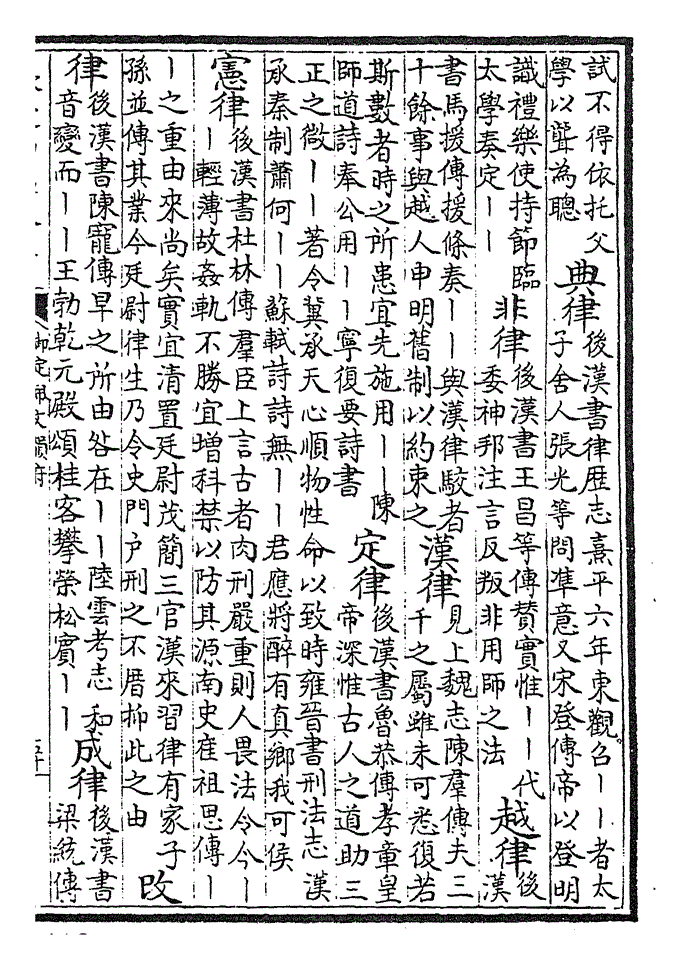 試不得依托父
學以聾為聰
典律
後漢書律歷志熹平六年東觀召丨丨者太
子舍人張光等問準意又宋登傳帝以登明
識禮樂使持節臨
太學奏定丨丨
非律
後漢書王昌等傳贊實惟丨丨代
委神邦注言反叛非用師之法
越律
後
漢
書馬援傳援條奏丨丨與漢律駮者
十餘事與越人申明舊制以約束之
漢律
見上魏志陳羣傳夫三
千之屬雖未可悉復若
斯數者時之所患宜先施用丨丨陳
師道詩奉公用丨丨寧復要詩書
定律
後漢書魯恭傳孝章皇
帝深惟古人之道助三
正之微丨丨著令冀承天心順物性命以致時雍晉書刑法志漢
承秦制蕭何丨丨蘇軾詩詩無丨丨君應將醉有真鄉我可侯
憲律
後漢書杜林傳羣臣上言古者肉刑嚴重則人畏法令今丨
丨輕薄故姦軌不勝宜增科禁以防其源南史崔祖思傳丨
丨之重由來尚矣實宜清置廷尉茂簡三官漢來習律有家子
孫並傳其業今廷尉律生乃令史門戶刑之不厝抑此之由
改
律
後漢書陳寵傳旱之所由咎在丨丨陸雲考志和
音變而丨丨王勃乾元殿頌桂客攀榮松賓丨丨
成律
後漢書
梁統傳
御定佩文韻府